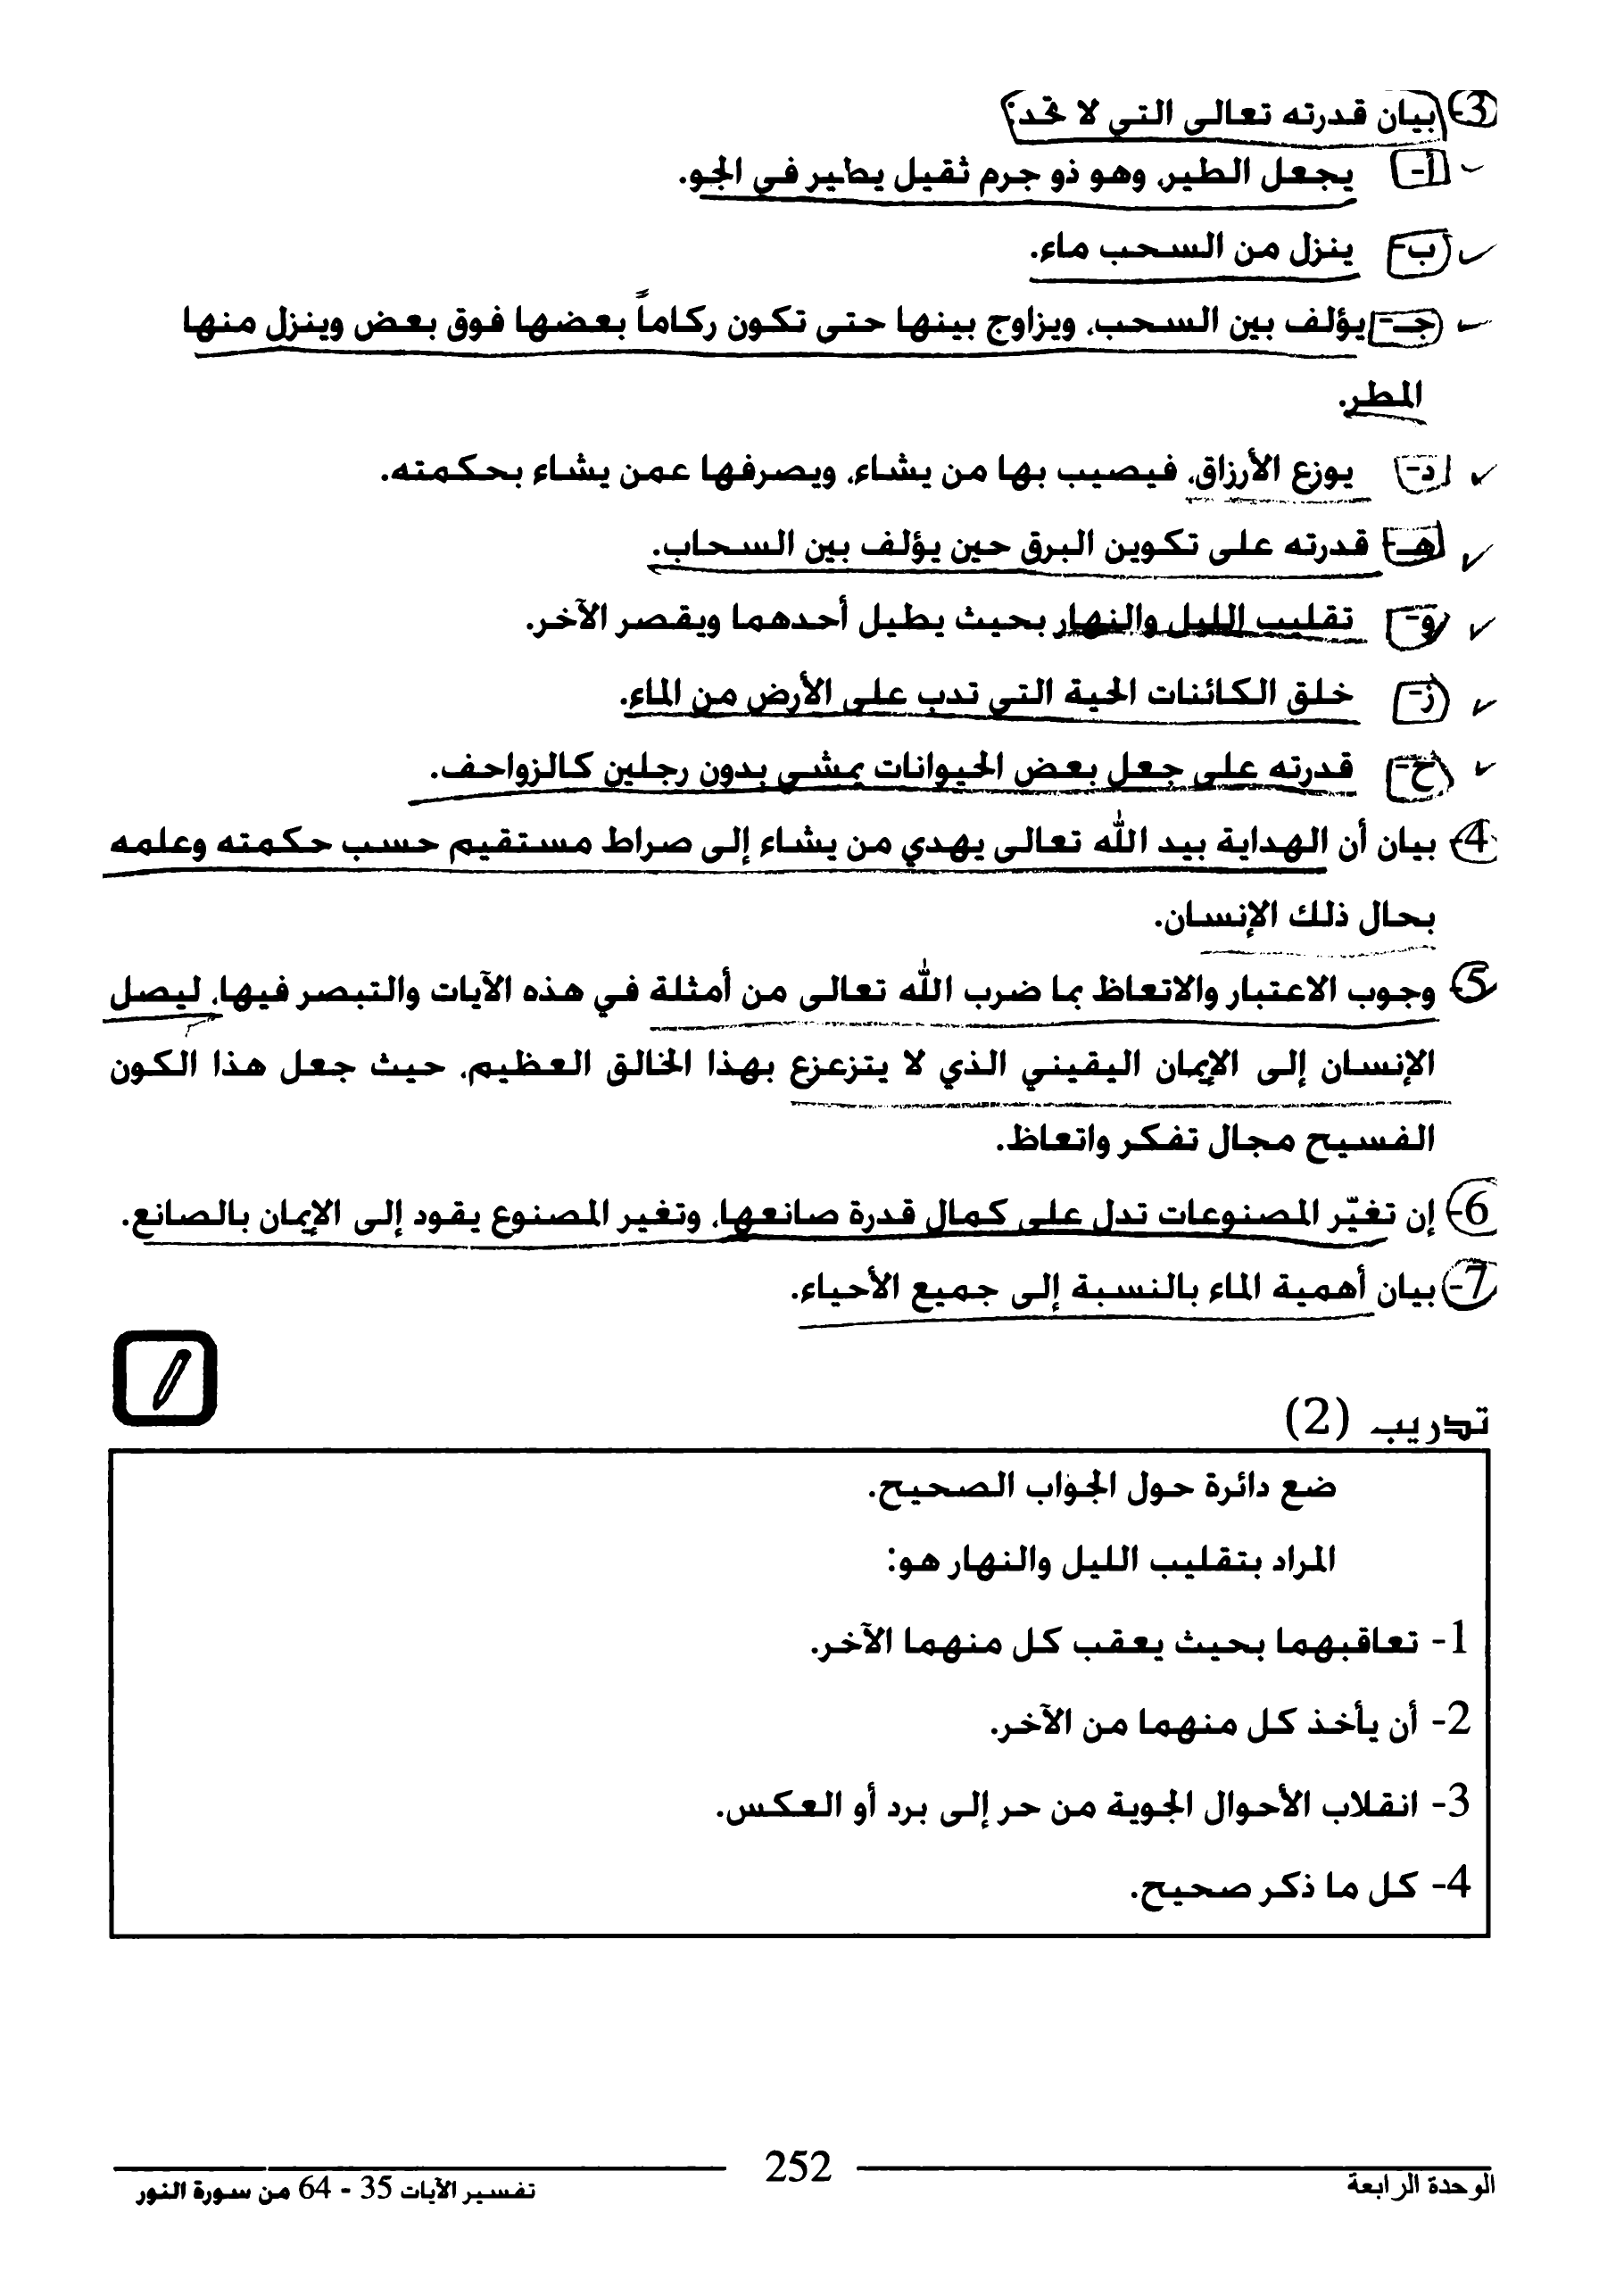 3- بيان قدرته تعالى التي لا تحد:
أ- يجعل الطير، وهو ذو جرم ثقيل يطير في الجو.
ب- ينزل من السحب ماء.
جـ- يؤلف بين السحب، ويزاوج بينها حتى تكون ركاماً بعضها فوق بعض وينزل منها
المطر.
د- يوزع الأرزاق، فيصيب بها من يشاء، ويصرفها عمن يشاء بحكمته.
هـ- قدرته على تكوين البرق حين يؤلف بين السحاب.
و- تقليب الليل والنهار بحيث يطيل أحدهما ويقصر الآخر.
ز- خلق الكائنات الحية التي تدب على الأرض من الماء.
ح- قدرته على جعل بعض الحيوانات يمشي بدون رجلين كالزواحف.
4- بيان أن الهداية بيد الله تعالى يهدي من يشاء إلى صراط مستقيم حسب حكمته وعلمه
بحال ذلك الإنسان.
5- وجوب الاعتبار والاتعاظ بما ضرب الله تعالى من أمثلة في هذه الآيات والتبصر فيها، ليصل
الإنسان إلى الإيمان اليقيني الذي لا يتزعزع بهذا الخالق العظيم، حيث جعل هذا الكون
الفسيح مجال تفكر واتعاظ.
6- إن تغيّر المصنوعات تدل على كمال قدرة صانعها، وتغير المصنوع يقود إلى الإيمان بالصانع.
7- بيان أهمية الماء بالنسبة إلى جميع الأحياء.
تدريب (2)
ضع دائرة حول الجواب الصحيح.
المراد بتقليب الليل والنهار هو:
1- تعاقبهما بحيث يعقب كل منهما الآخر.
2- أن يأخذ كل منهما من الآخر.
3- انقلاب الأحوال الجوية من حر إلى برد أو العكس.
4- كل ما ذكر صحيح.
الوحدة الرابعة
252
تفسير الآيات 35 - 64 من سورة النور